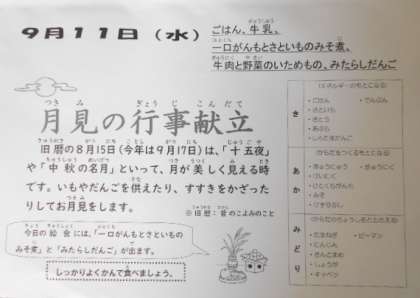 ９月１１日（水）
ごはん、牛乳、
一口がんもとさといものみそ煮、
牛肉と野菜のいためもの、みたらしだんご
月見の行事献立
旧暦の８月１５日（今年は９月１７日）は、「十五夜」
や「中秋の名月」といって、月が美しく見える時
です。いもやだんごを供えたり、すすきをかざった
りしてお月見をします。
※旧暦：昔のこよみのこと
今日の給食には、「一口がんもとさといもの
みそ煮」と「みたらしだんご」が出ます。
しっかりよくかんで食べましょう。
（エネルギーのもとになる）
き
・ごはん ・でんぷん
・さといも
・さとう
・あぶら
・しらたまだんご
（からだをつくるもとになる）
あか
・ぎゅうにゅう ・ぎゅうにく
・だいず
・ひとくちがんも
・みそ
（からだのちょうしをととのえる）
みどり
・たまねぎ ・ピーマン
・にんじん
・さんどまめ
・しょうが
・キャベツ